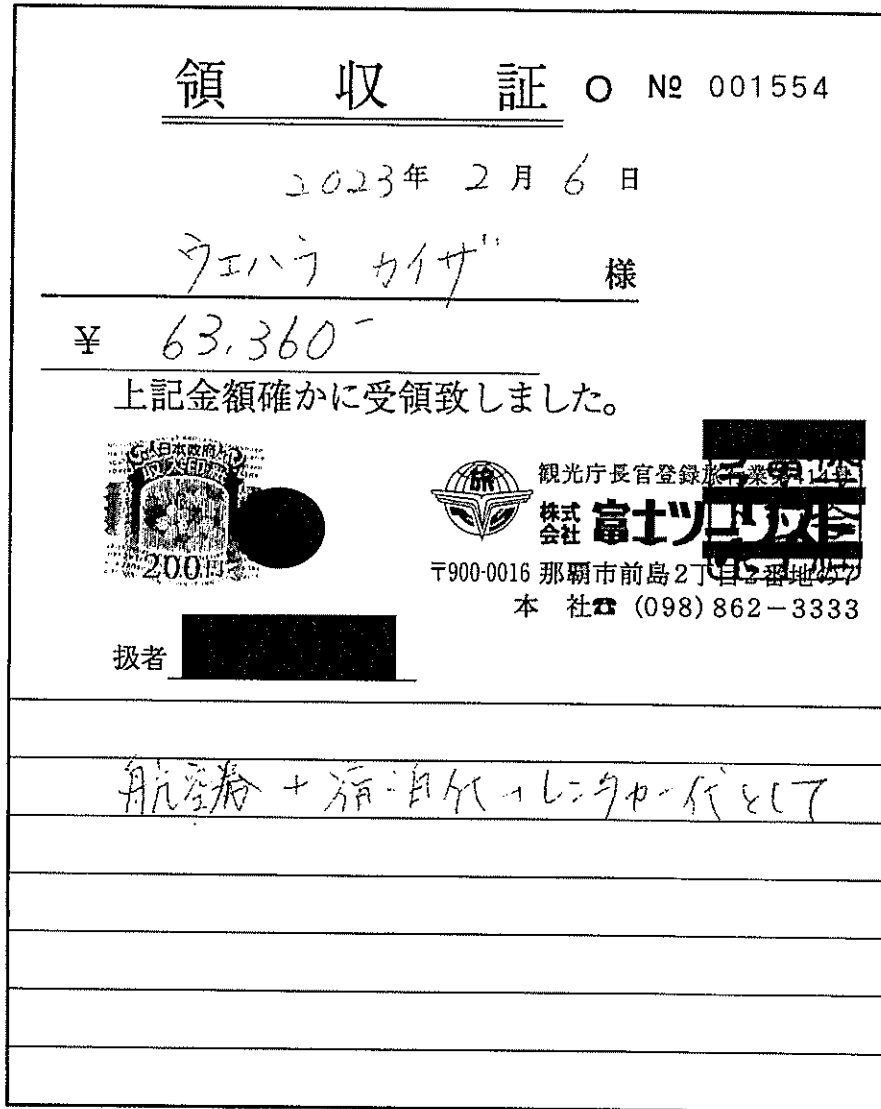 領収証 O № 001554
2023年 2月 6日
ウエハラ カイザ 様
¥ 63,360-
上記金額確かに受領致しました。
日本政府
収入印紙
200円
旅
観光庁長官登録旅行業第414号
株式会社 富士ツーリスト
〒900-0016 那覇市前島2丁目2番地の7
本 社☎ (098) 862-3333
扱者
航空券 + 宿泊代 + レンタカー代として